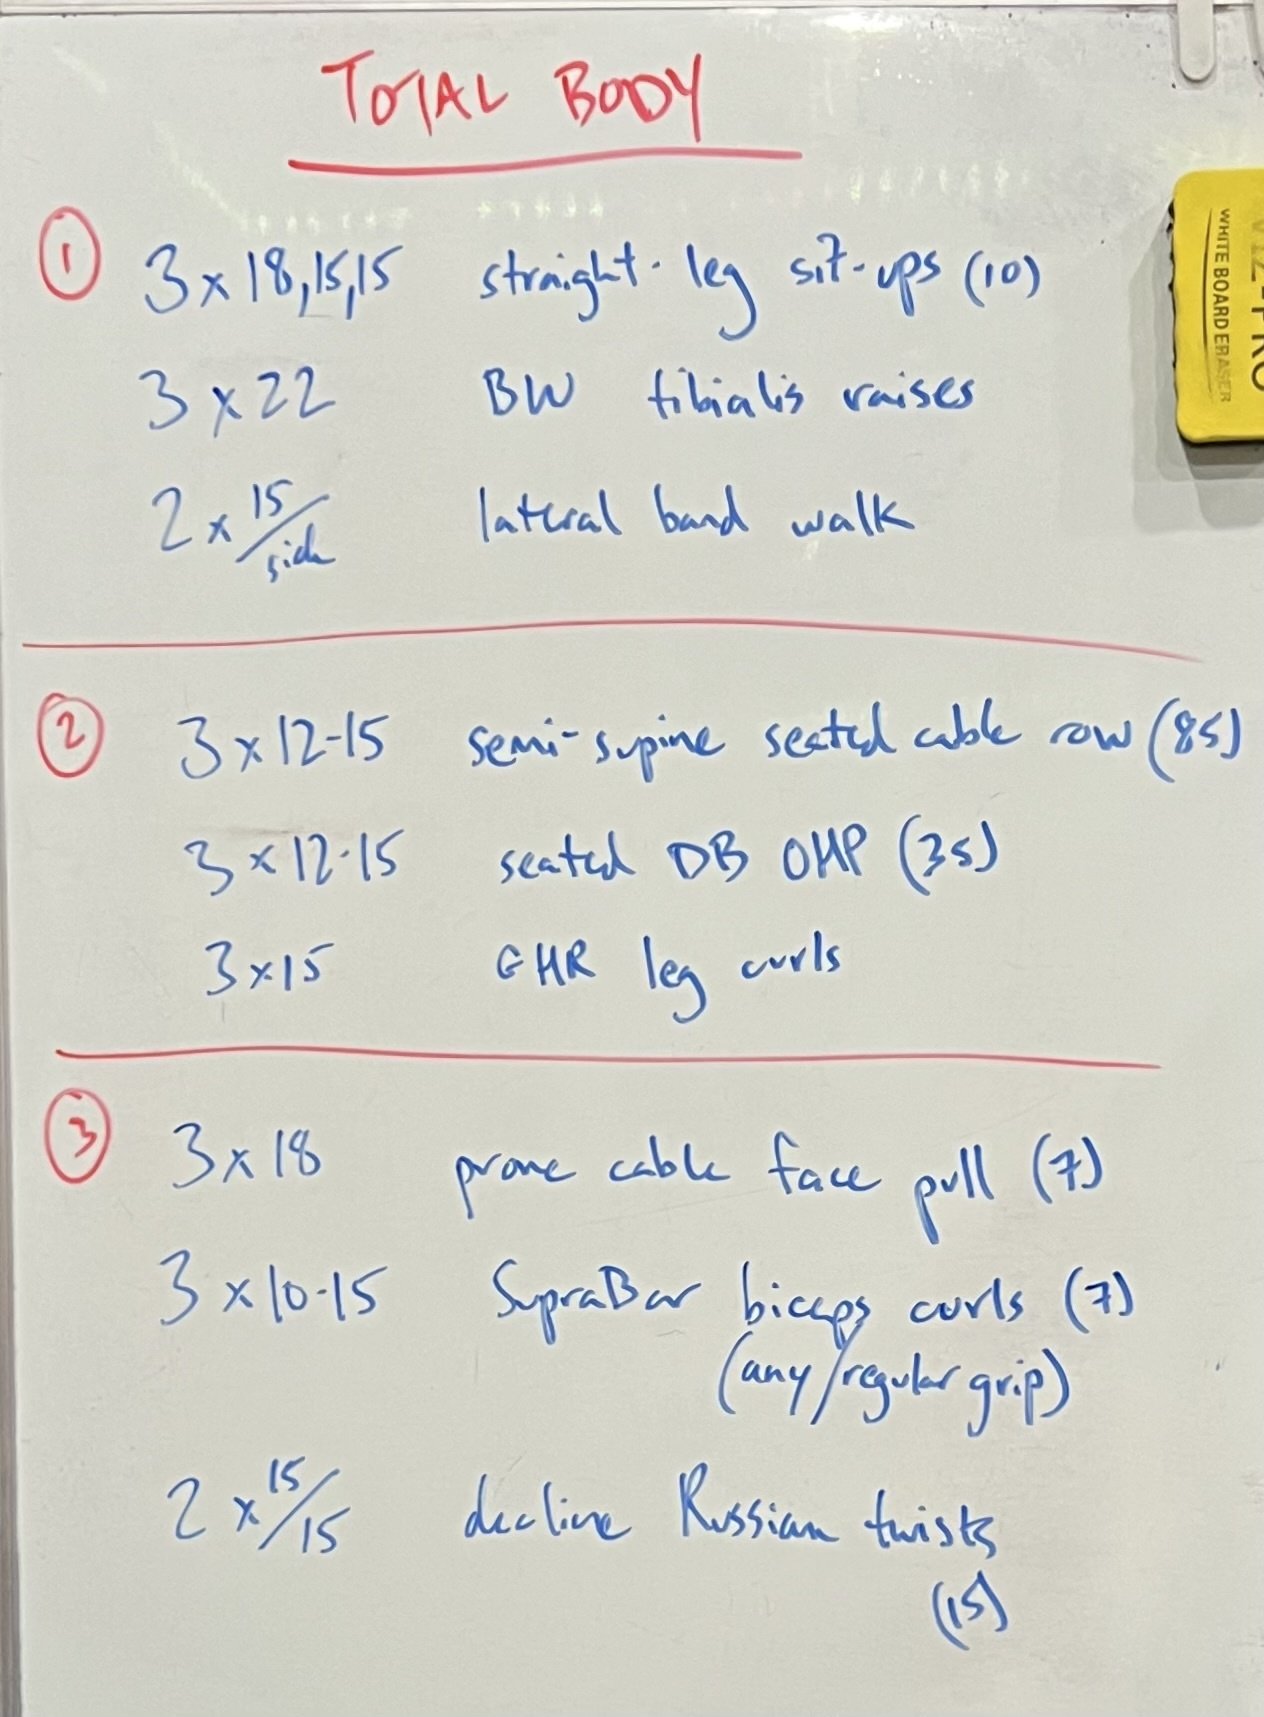 TOTAL BODY
1 3 x 18,15,15 straight-leg sit-ups (10)
3 x 22 BW tibialis raises
2 x 15/side lateral band walk
2 3 x 12-15 semi-supine seated cable row (85)
3 x 12-15 seated DB OHP (35)
3 x 15 GHR leg curls
3 3 x 18 prone cable face pull (7)
3 x 10-15 SupraBar biceps curls (7)
(any/regular grip)
2 x 15/15 decline Russian twists
(15)
WHITE BOARD ERASER